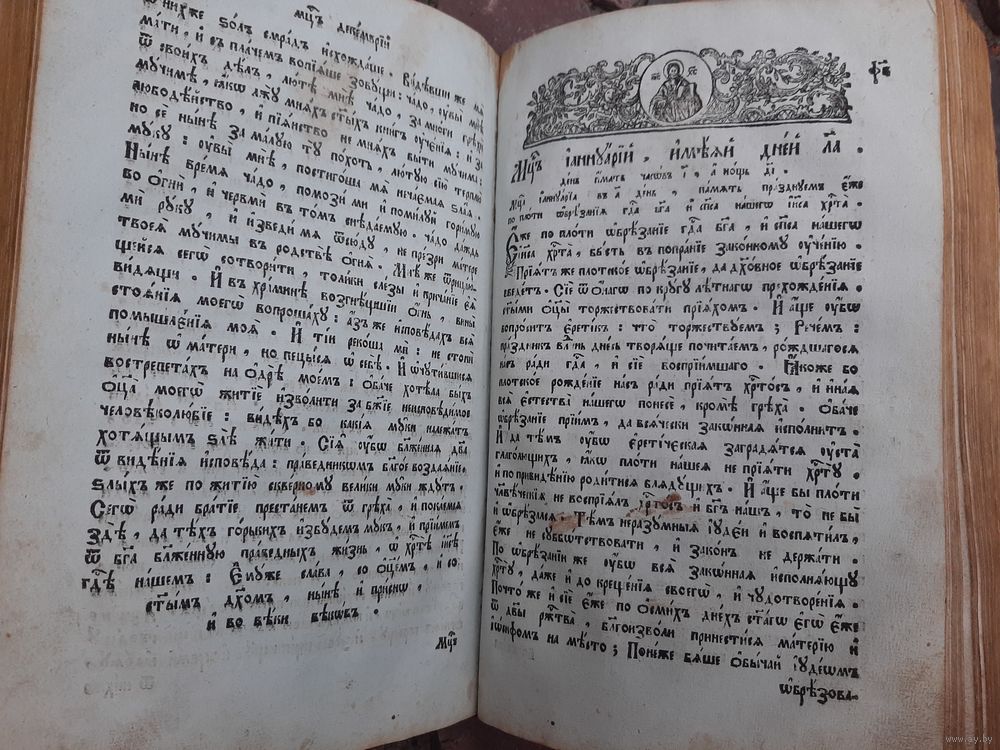 мцъ декемврій
ѿ них же ѕолъ смрадъ исхождаше. Видѣвши же мѧ
мати, и съ плачемъ вопіѧше зовущи: чадо, оувы мнѣ
ѿ своихъ дѣлъ, лютѣ мнѣ чадо, за многи грѣхи
мучимѣ, ꙗкѡ лжу мнѧхъ стыхъ книгъ оученїѧ: и за
любодѣйство, и пїѧнство не мнѧхъ быти мучима:
но се нынѣ за малую ту похоть, лютую сїю терплю
муку: оувы мнѣ, постигоша мѧ нечаемаѧ ѕлаѧ.
Нынѣ времѧ чадо, помози ми и помилуй горимую
во огни, и червми въ томъ снѣдаемую. чадо даждь
ми руку, и изведи мѧ ѿсюду, не презри матере
твоеѧ мучимы въ родствѣ огнѧ. Мнѣ же ѿрицаю-
щейсѧ сегѡ сотворити, толики слезы и причанїе еѧ
видѧщи. И въ храминѣ возгнѣщшїи огнь, вины
стоѧнїѧ моегѡ вопрошаху: азъ же исповѣдахъ всѧ
помышленїѧ моѧ. И тіи рекоша ми: не стопи
нынѣ ѿ матери, но пецысѧ ѡ себѣ. И ѡчутившисѧ
вострепетахъ на одрѣ моемъ: обаче хотѣла быхъ
оца моегѡ житїе изволити за бжїе неисповѣдимое
человѣколюбїе: видѣхъ бо какїѧ муки належатъ
хотѧщымъ ѕлѣ жати. Сїѧ оубѡ блженнаѧ два
ѿ видѣнїѧ исповѣда: праведникомъ благое воздаѧнїе,
ѕлыхъ же по житїю скверному велики муки ждутъ.
Сегѡ ради братїе престанемъ ѿ грѣха, и покаемсѧ
здѣ, да тѣхъ горькихъ избудемъ мукъ, и прїимемъ
ѿ бга блженную праведныхъ жизнь, ѡ хртѣ їисѣ
гдѣ нашемъ: Емуже слава, со оцемъ, и со
стымъ дхомъ, нынѣ и приснѡ,
и во вѣки вѣкѡвъ.
Мцъ
Мцъ іаннуарїй. имѣѧй дней ла.
день имать часѡвъ і, а нощь ді.
Мца іаннуарїѧ въ а день, памѧть празднуемъ еже
по плоти ѡбрѣзанїѧ гда бга и спса нашегѡ іиса хрта.
Еже по плоти ѡбрѣзанїе гда бга, и спса нашегѡ
іиса хрта, бысть въ попранїе законному оученїю.
Прїѧтъ же плотское ѡбрѣзанїе, да дховное ѡбрѣзанїе
введетъ. Сїе ѿ онагѡ по кругу лѣтнагѡ прехожденїѧ
стыми оцы торжествовати прїѧхомъ. И аще оубѡ
вопроситъ еретікъ: что торжествуемъ; Речемъ:
праздникъ влнь днесь творѧще почитаемъ, рождшагосѧ
насъ ради гда, и сїе воспрїимшаго. Ꙗкоже бо
плотское рожденїе насъ ради прїѧтъ хртосъ, и инаѧ
всѧ естества нашегѡ понесе, кромѣ грѣха. Обаче
ѡбрѣзанїе прїимъ, да всѧчески законнаѧ исполнитъ.
И да тѣмъ оубѡ еретїческаѧ заградѧтсѧ оуста
глаголющихъ, ꙗкѡ плоти нашеѧ не прїѧти хрту.
и по привидѣнїю родитисѧ блѧдущихъ. И аще бы плоти
члвѣческїѧ не воспрїѧлъ хртосъ и бгъ нашъ, то не бы
и ѡбрѣзалсѧ. Тѣмъ неразумныѧ іудеи и воспѧтилъ,
еже не субботствовати, и законъ не держати.
По ѡбрѣзанїи же оубѡ всѧ законнаѧ исполнѧющу
хрту, даже и до крещенїѧ своегѡ, и чудотворенїѧ.
Почто же и сїе еже по осмихъ днехъ стагѡ егѡ еже
ѿ двы ржтва, благоизволи принестисѧ матерїю и
іѡсифомъ на мѣсто; Понеже бѧше обычай іудеѡмъ
ѡбрѣзова-